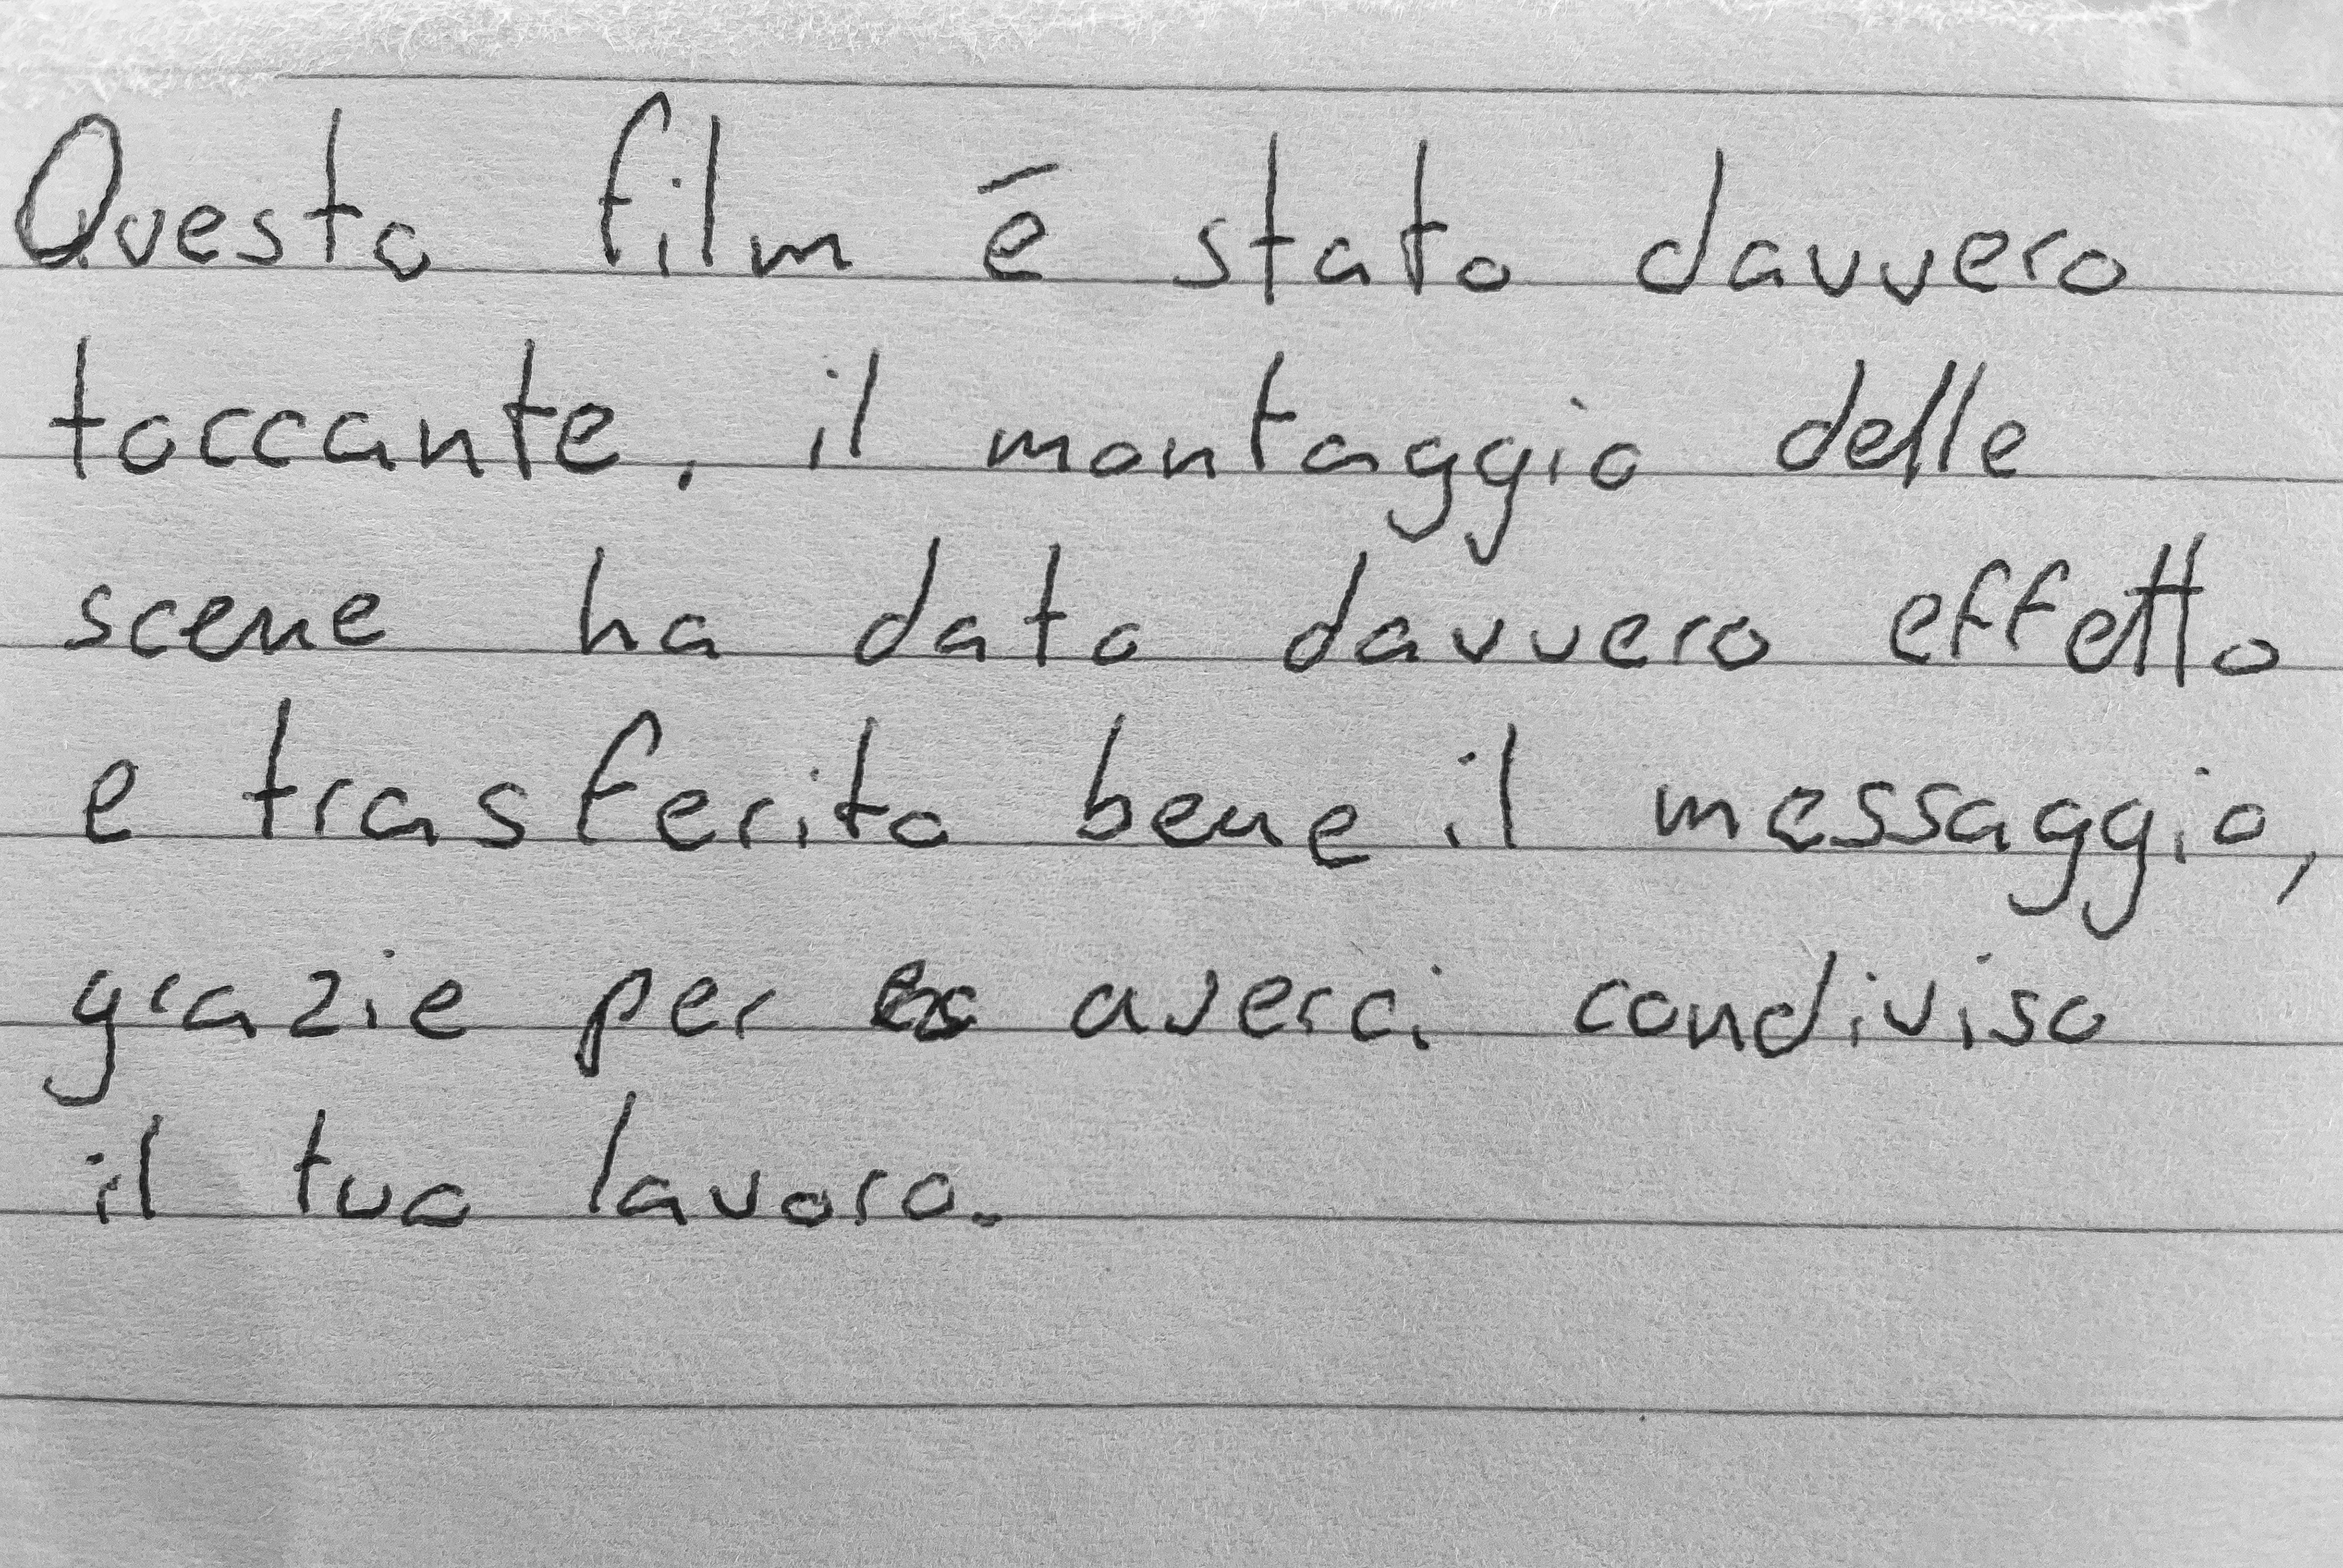 Questo film è stato davvero
toccante. il montaggio delle
scene ha dato davvero effetto
e trasferito bene il messaggio,
grazie per averci condiviso
il tuo lavoro.